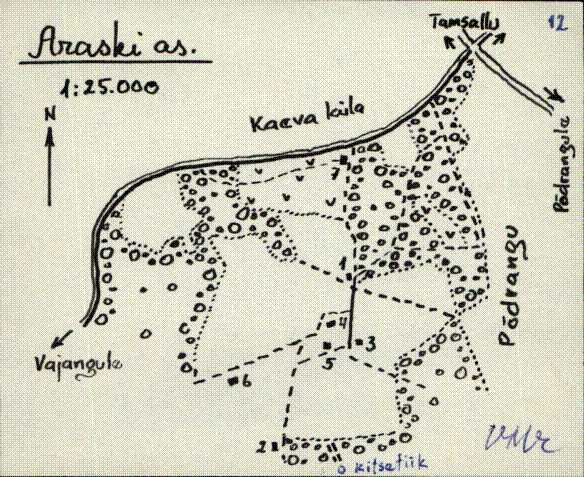 Araski as.
1:25.000
N
Tamsallu
12
Kaeva küla
Põdrangule
Põdrangu
Vajangule
7
1
4
3
5
6
2
kitsetiik